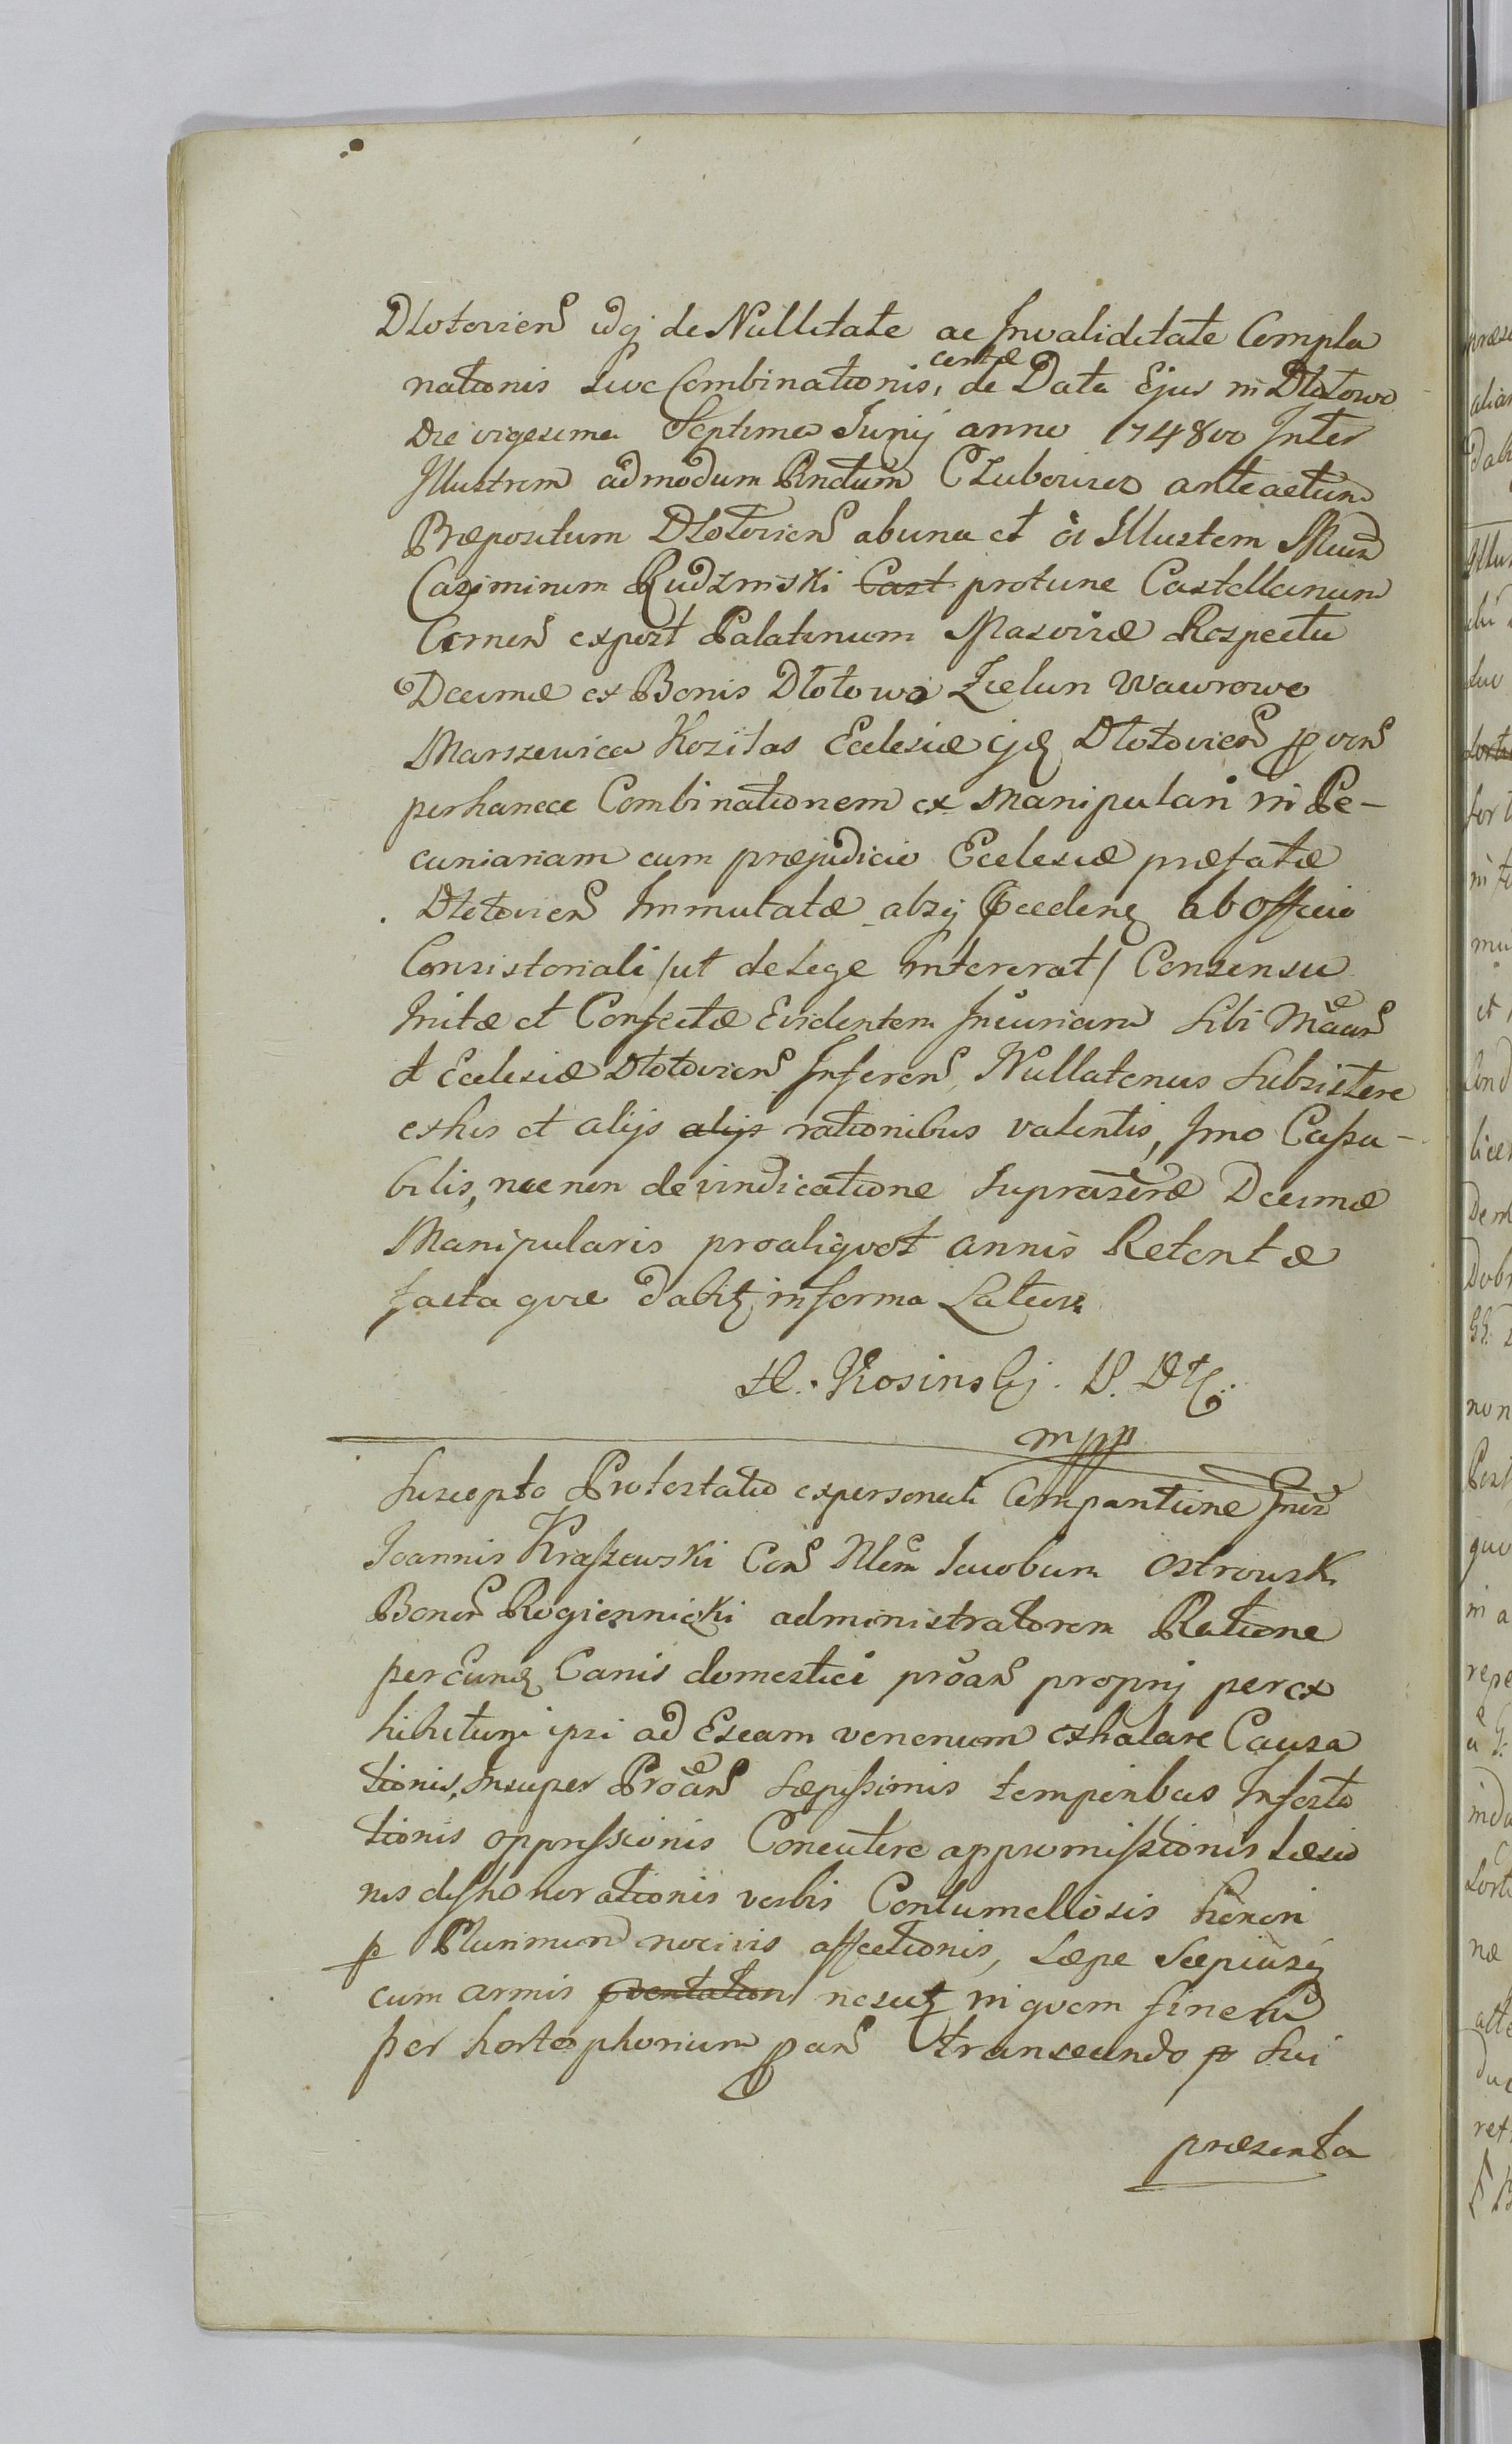 Dlotovien idq de Nullitate ac Invaliditate Compla
nationis sive Combinationis, certæ de Data Ejus in Dlotowo
Die vigesima Septima Junij anno 1748vo Inter
Illustrem admodum Rndum Czubowicz anteactum
Præpositum Dlotovien ab una et Illustem
Casimirum Rudzinski Cast protunc Castellanum
Cernen expost Palatinum Masoviæ Respectu
Decimæ ex Bonis Dłotowo Zielun Wawrowo
Marszewica Kozilas Ecclesiæ ejd Dlotovien pven
perhancce Combinationem ex Manipulari in Pe-
cuniariam cum præjudicio Ecclesiæ præfatæ
Dlotovien Immutatæ absq Pcceden ab Officio
Consistoriali /ut de Lege Intererat/ Consensu
Initæ et Confectæ Evidentem Iniuriam sibi
et Ecclesiæ Dlotovien Inferen, Nullatenus Subsistere
exhis et alijs alijs rationibus valentis, Imo Cassa-
bilis, necnon de vindicatione Suprascræ Decimæ
Manipularis proaliquot annis Retentæ
facta quæ dabit informa Latiori
H. Kosinskj.
mpp
Suscepta Protestatio expersonali Comparitione
Joannis Kraszewski Con Jacobum Ostrowski
Bonor Rogiennicki administratorem Ratione
Canis domestici propry perex
hibitum ipsi ad Escam venenum exhalare Causa
tionis, Insuper sæpissimis temporibus Infesta
tionis oppressionis Concutere appromissionis læsio
nis dishonorationis verbis Contumeliosis honori
p Plurimum nocivis affectionis, sæpe sæpiusq
cum armis in quem finem
per hortos transeundo p sui
præsenta